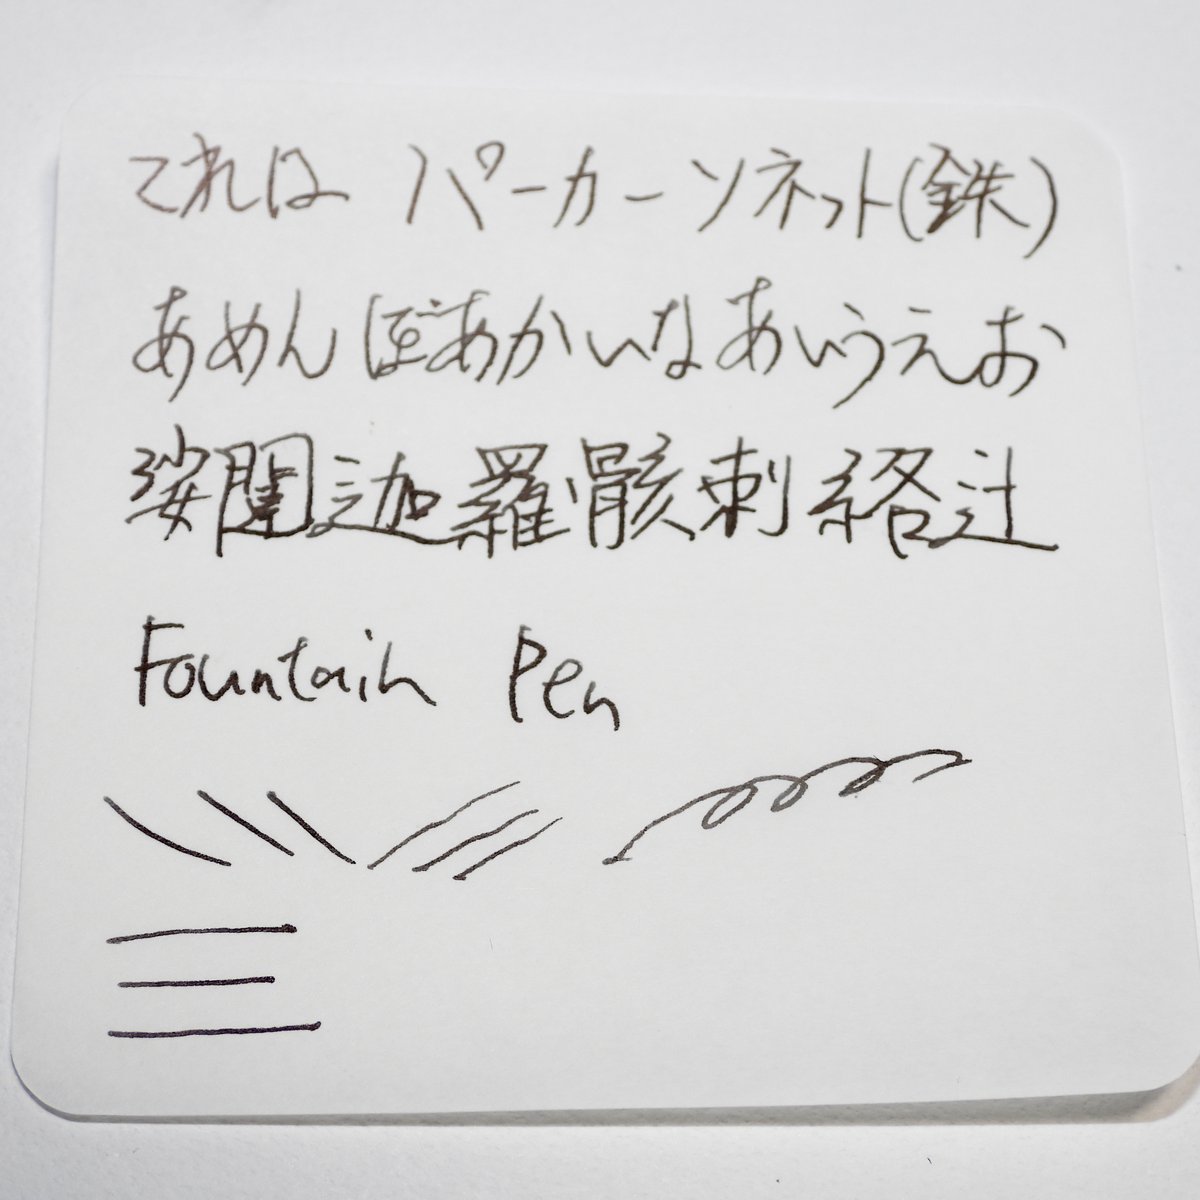 これは パーカーソネット(鉄)
あめんぼあかいなあいうえお
娑闥迦羅骸刺絡辻
Fountain Pen